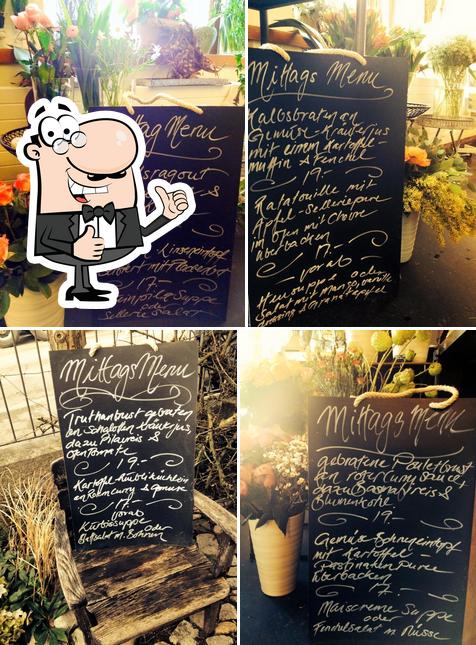 ag Menu
sragout
&
Linseneintopf
17.-
Suppe
oder
Sellerie Salat
Mittags Menu
Kalbsbraten an
Gemüse-Kräuterjus
mit einem Kartoffel-
muffin & Fenchel
19.-
Ratatouille mit
Apfel-Selleriepüre
im Ofen mit Chèvre
überbacken
17.-
vorab
Heusuppe oder
Salat mit Mango, Vanille
Dressing & Granatapfel
Mittags Menu
Truthanbrust gebraten
an Schalotten Kräuterjus,
dazu Pilavreis &
Ofentomate
19.-
Kartoffel-Kürbisküchlein
an Remoury & Gemüse
17.-
vorab
Kürbissuppe
oder
Blattsalat m. Bohnen
Mittags Menu
gebratene Pouletbrust
an roter Currysauce,
dazu Basmatireis &
Blumenkohl
19.-
Gemüse-Bohneneintopf
mit Kartoffel
Pastinaken Püree
überbacken
17.-
Maiscreme Suppe
oder
Fenchelsalat m. Nüsse